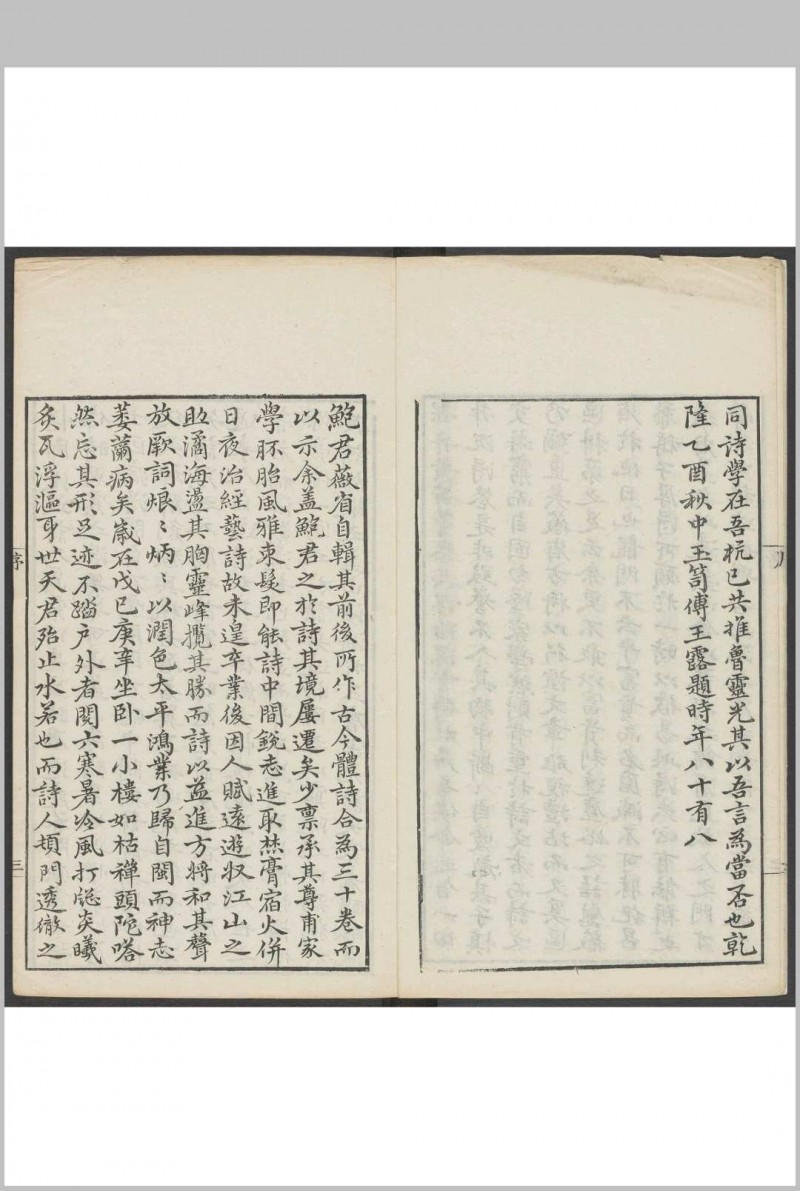 同詩學在吾杭已共推魯靈光其以吾言為當否也乾
隆乙酉秋中玉笥傅王露題時年八十有八
鮑君薇省自輯其前後所作古今體詩合為三十卷而
以示余盖鮑君之於詩其境屢遷矣少禀承其尊甫家
學胚胎風雅束髮即能詩中間銳志進取焚膏宿火併
日夜治經藝詩故未遑卒業後因人賦遠遊収江山之
助潏海盪其胸靈峰攬其勝而詩以益進方將和其聲
放厥詞烺〻炳〻以潤色太平鴻業乃歸自閩而神志
萎薾病矣嵗在戊己庚辛坐卧一小樓如枯禪頭陀嗒
然忘其形足迹不踏户外者閱六寒暑冷風打牕炎曦
炙瓦浮漚身世天君殆止水若也而詩人頂門透徹之
序
三